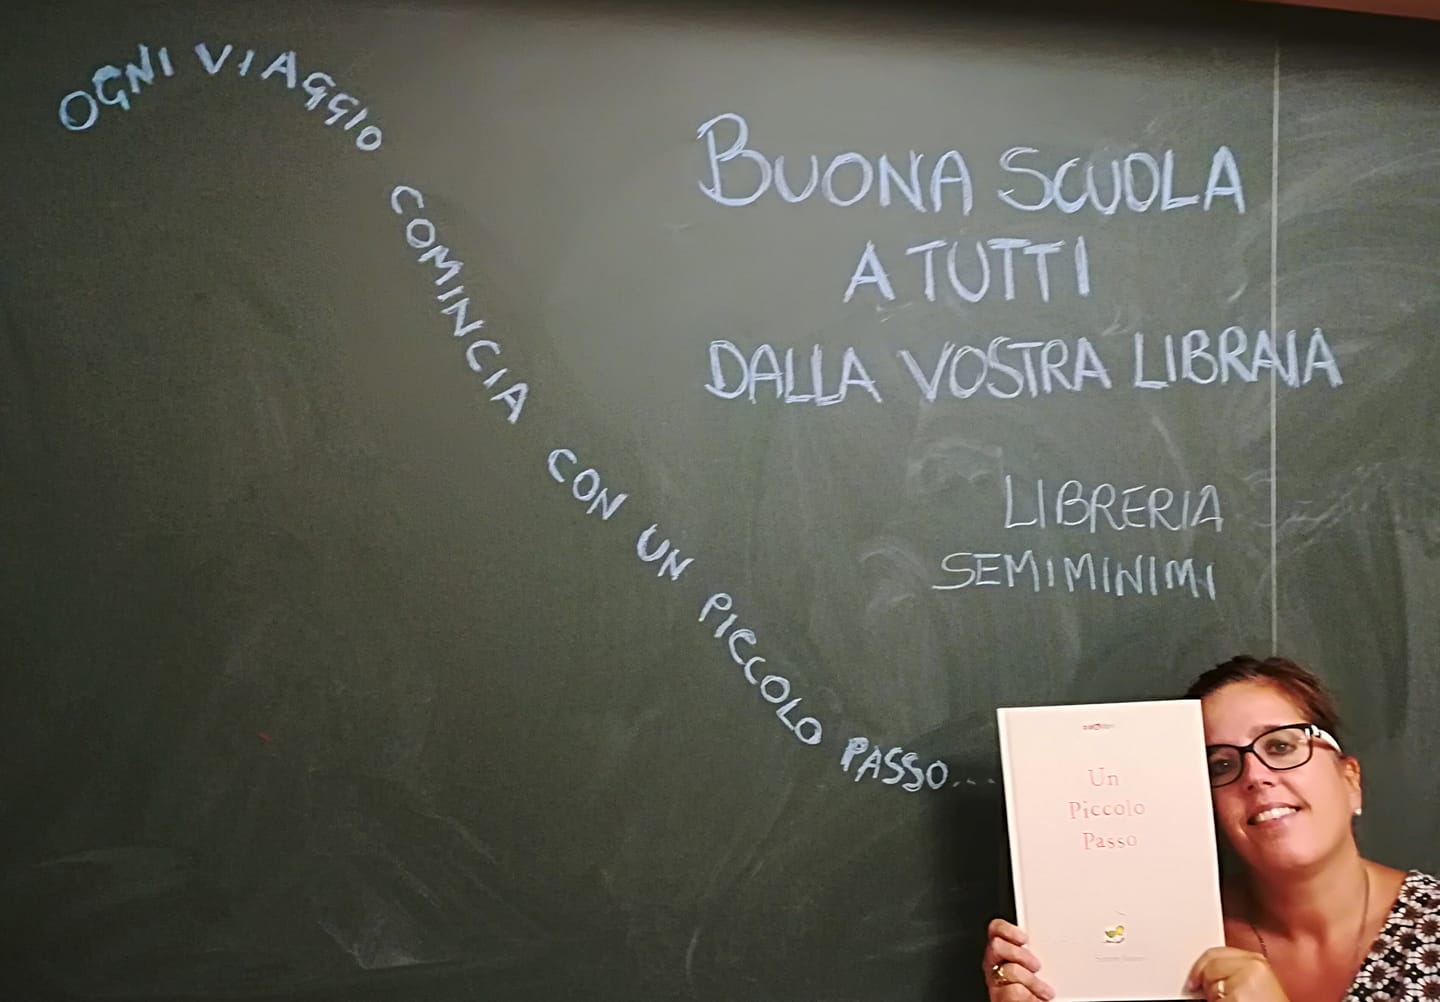 OGNI VIAGGIO COMINCIA CON UN PICCOLO PASSO...
BUONA SCUOLA
A TUTTI
DALLA VOSTRA LIBRAIA
LIBRERIA
SEMIMINIMI
Un
Piccolo
Passo